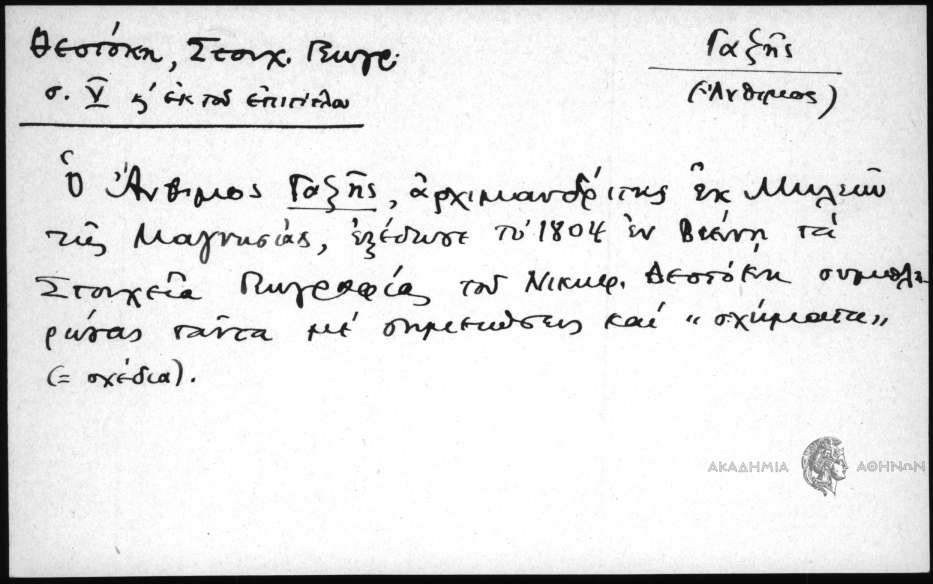 Θεοτόκη, Στοιχ. Γεωγρ.
σ. V ἐκ τοῦ ἐπιτίτλου
Γαζῆς
(Ἄνθιμος)
Ὁ Ἄνθιμος Γαζῆς, ἀρχιμανδρίτης ἐκ Μηλεῶν
τῆς Μαγνησίας, ἐξέδωσε τὸ 1804 ἐν Βιέννῃ τὰ
Στοιχεῖα Γεωγραφίας τοῦ Νικηφ. Θεοτόκη συμπλη-
ρώσας ταῦτα μὲ σημειώσεις καὶ "σχήματα"
(= σχέδια).
ΑΚΑΔΗΜΙΑ ΑΘΗΝΩΝ